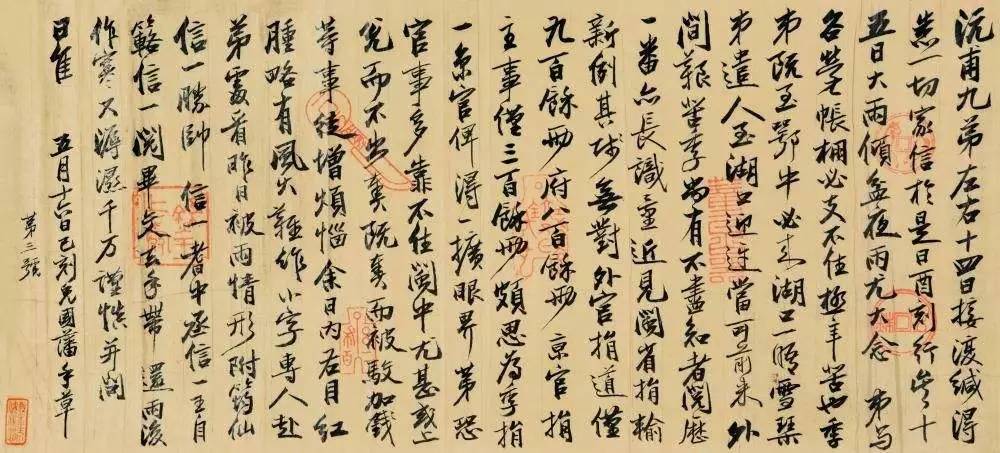 沅甫九弟左右十四日接渡缄得
悉一切家信於是日酉刻行矣十
五日大雨傾盆夜雨尤大念弟与
各營帳棚必支不住極辛苦也季
弟既至鄂中必來湖口一晤雪琴
弟遣人至湖口迎迓當可前来外
間艱苦季尚有不盡知者閱歷
一番亦長識量近見閩省捐輸
新例其城無對外官捐道僅
九百餘兩府八百餘兩京官捐
主事僅三百餘兩頗思為季捐
一京官俾得一擴眼界第恐
官事多靠不住閩中尤甚或上
兌而不出奏既奏而被駁加錢
等事徒增煩惱余日内右目紅
腫略有風火難作小字專人赴
弟處看昨日被雨情形附筠仙
信一勝帥信一耆中丞信一王自
信一閱畢交去手帶還雨後
作寒又潯濕千万謹慎并問
日佳
五月十六日已刻兄國藩手草
第三號